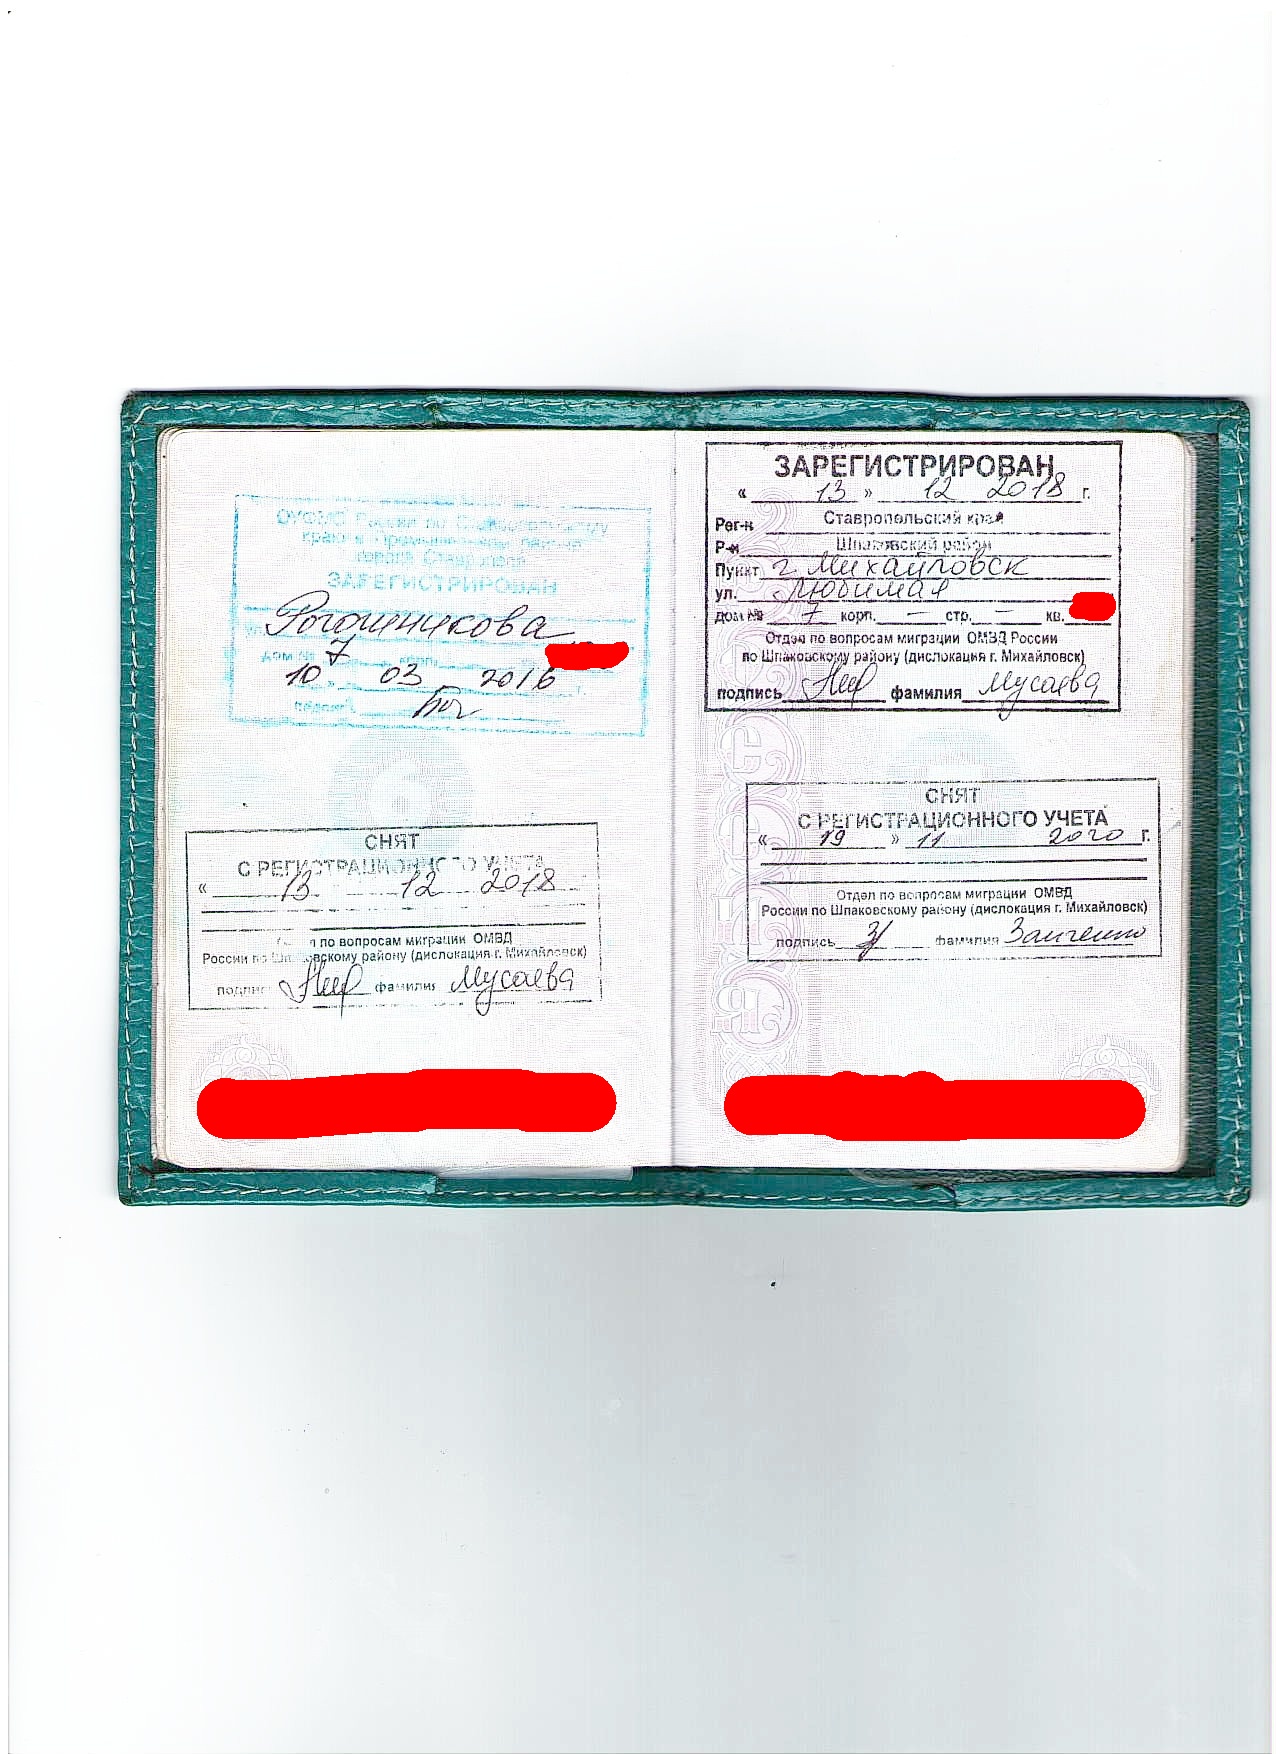 ОУФМС России по Ставропольскому
краю в Промышленном районе
города Ставрополя
ЗАРЕГИСТРИРОВАН
дом № 7
10 03 2016 г.
СНЯТ
С РЕГИСТРАЦИОННОГО УЧЕТА
« 13 12 2018
по вопросам миграции ОМВД
России по Шпаковскому району (дислокация г. Михайловск)
подпись фамилия Мусаева
ЗАРЕГИСТРИРОВАН
« 13 » 12 2018 г.
Рег-н Ставропольский край
Р-н Шпаковский район
Пункт г. Михайловск
ул. Любимая
дом № 7 корп. — стр. — кв.
Отдел по вопросам миграции ОМВД России
по Шпаковскому району (дислокация г. Михайловск)
подпись фамилия Мусаева
СНЯТ
С РЕГИСТРАЦИОННОГО УЧЕТА
« 19 » 11 2020 г.
Отдел по вопросам миграции ОМВД
России по Шпаковскому району (дислокация г. Михайловск)
подпись фамилия